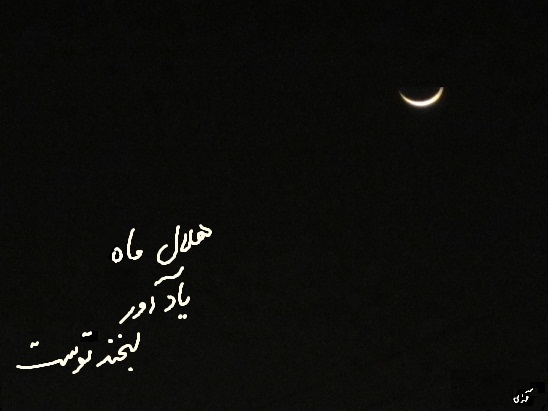 هلال ماه
یاد آور
لبخند توست